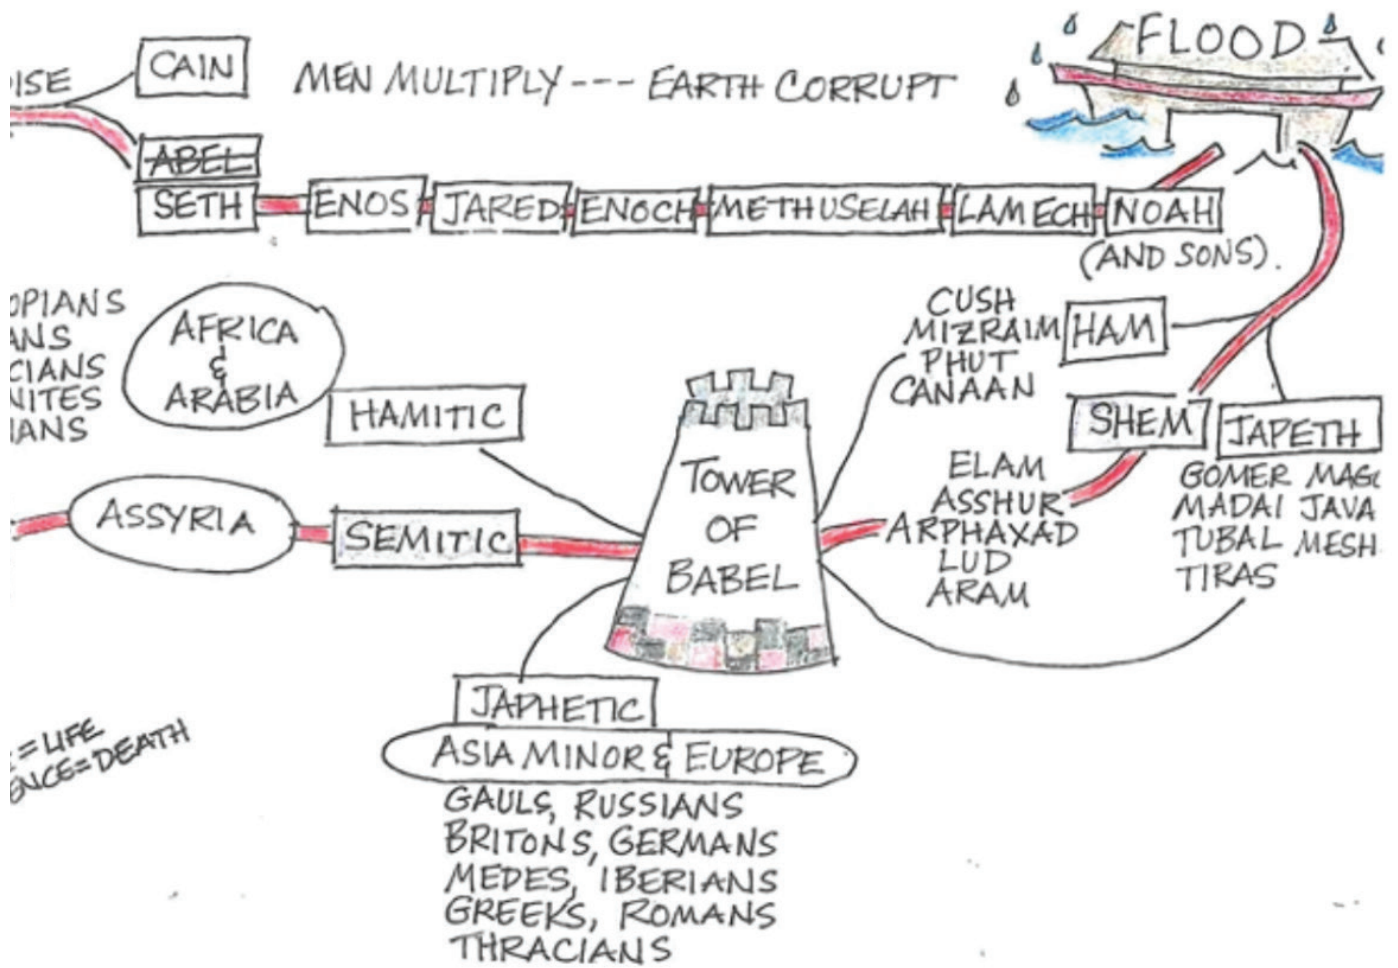 FLOOD
ISE
CAIN
MEN MULTIPLY --- EARTH CORRUPT
ABEL
SETH
ENOS
JARED
ENOCH
METHUSELAH
LAMECH
NOAH
(AND SONS).
OPIANS
ANS
CIANS
NITES
IANS
AFRICA
&
ARABIA
HAMITIC
CUSH
MIZRAIM
PHUT
CANAAN
HAM
SHEM
JAPETH
ELAM
ASSHUR
ARPHAXAD
LUD
ARAM
GOMER MAG
MADAI JAVA
TUBAL MESH
TIRAS
TOWER
OF
BABEL
ASSYRIA
SEMITIC
JAPHETIC
ASIA MINOR & EUROPE
GAULS, RUSSIANS
BRITONS, GERMANS
MEDES, IBERIANS
GREEKS, ROMANS
THRACIANS
=LIFE
ENCE=DEATH